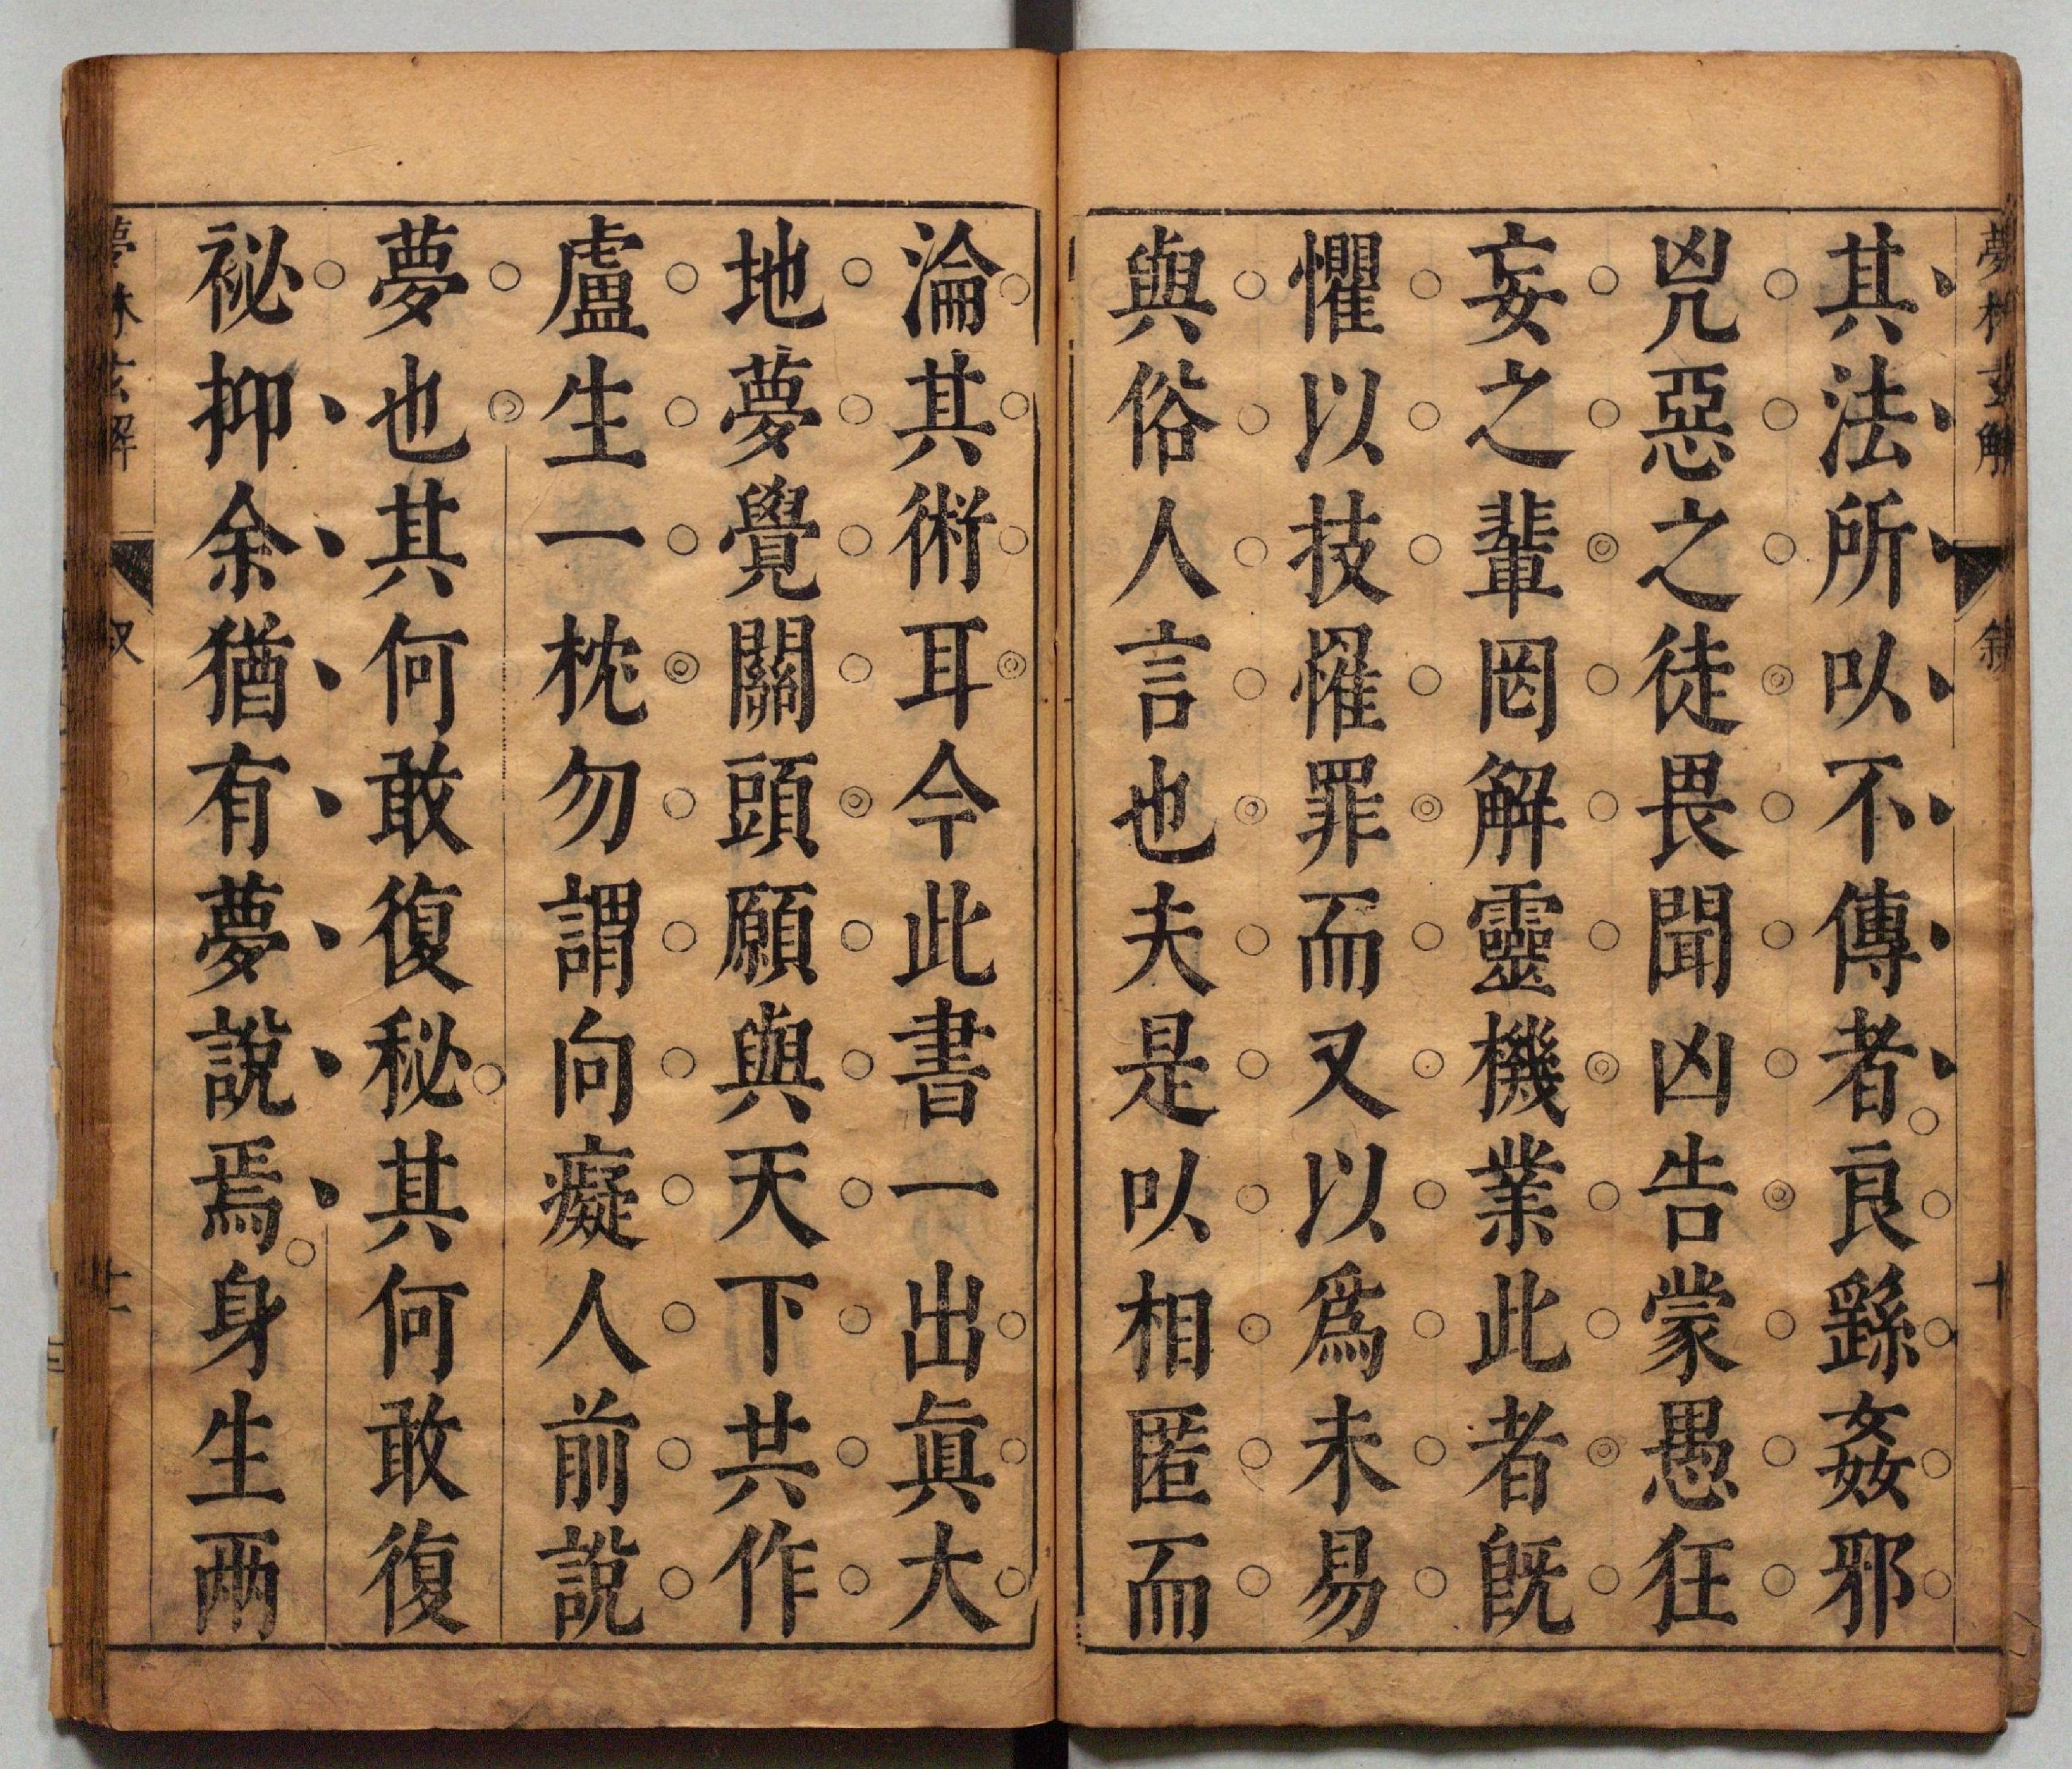 夢林玄解
敘
十
其法所以不傳者良繇姦邪
兇惡之徒畏聞凶告蒙愚狂
妄之輩罔解靈機業此者旣
懼以技罹罪而又以爲未易
與俗人言也夫是以相匿而
淪其術耳今此書一出眞大
地夢覺關頭願與天下共作
盧生一枕勿謂向癡人前說
夢也其何敢復秘其何敢復
祕抑余猶有夢說焉身生兩
夢林玄解
十一